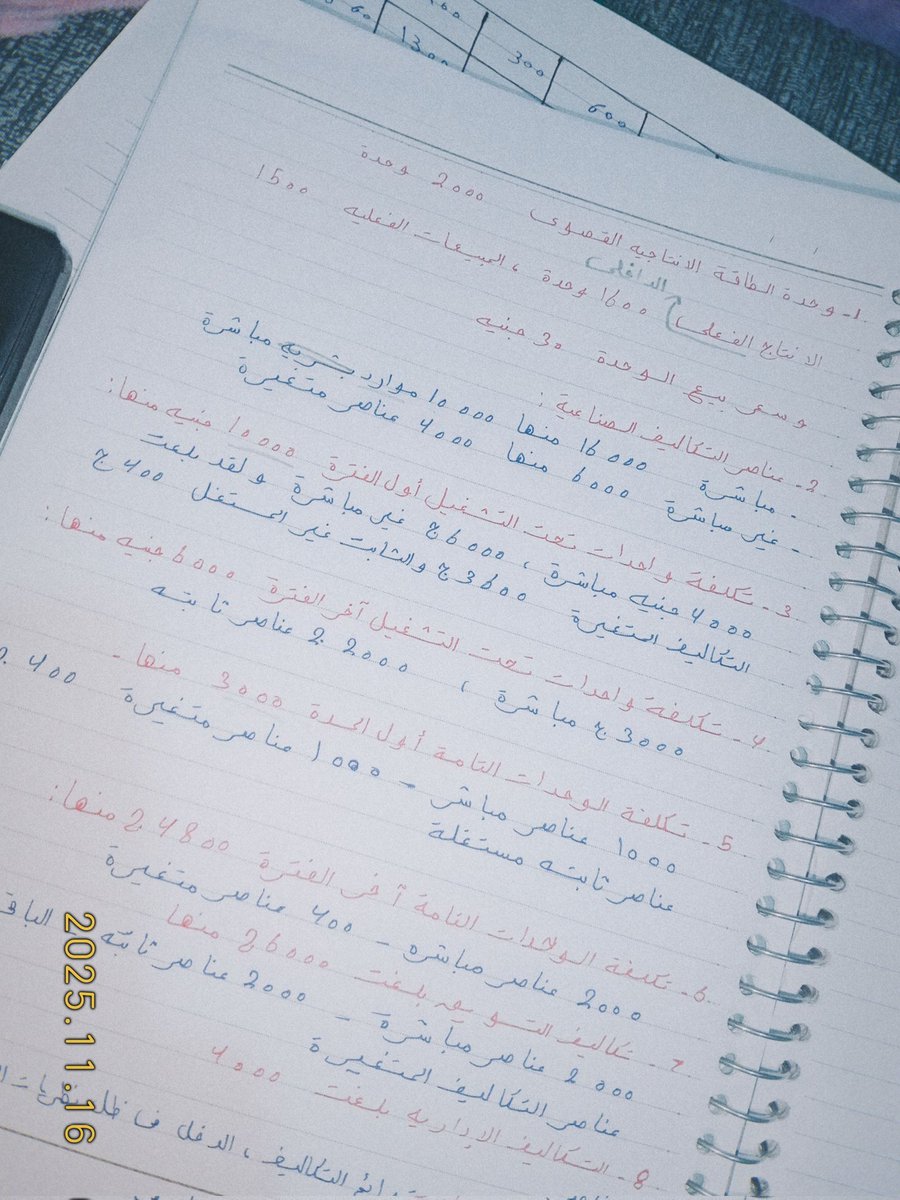 160
1300
300
600
1- وحدة الطاقة الانتاجيه القصوى 2000 وحدة
الداخلى
الانتاج الفعلى 1600 وحدة ، المبيعات الفعليه 1500
وسعر بيع الوحدة 30 جنيه
2- عناصر التكاليف الصناعية :
- مباشرة 16000 منها 10000 موارد بشريه مباشرة
- غير مباشرة 6000 منها 4000 عناصر متغيرة
3- تكلفة واحدات تحت التشغيل أول الفترة 10000 جنيه منها:
4000 جنيه مباشرة ، 6000 ج غير مباشرة ولقد بلغت
التكاليف المتغيرة 3600 ج والثابت غير المستغل 400 ج
4- تكلفة واحدات تحت التشغيل آخر الفترة 6000 جنيه منها:
3000 ج مباشرة ، 2000 ج عناصر ثابته
5- تكلفة الوحدات التامة أول المدة 3000 منها -
1000 عناصر مباشر - 1000 عناصر متغيرة 400 ج
عناصر ثابته مستغلة
6- تكلفة الوحدات التامة آخر الفترة 4800 ج منها:
2000 عناصر مباشره - 400 عناصر متغيرة
7- تكاليف التسويق بلغت 6000 ج منها
2000 عناصر مباشرة - 2000 عناصر ثابته
عناصر التكاليف المتغيرة
8- التكاليف الإداريه بلغت 4000
قوائم التكاليف ، الدخل فى ظل نظريات
2025.11.16